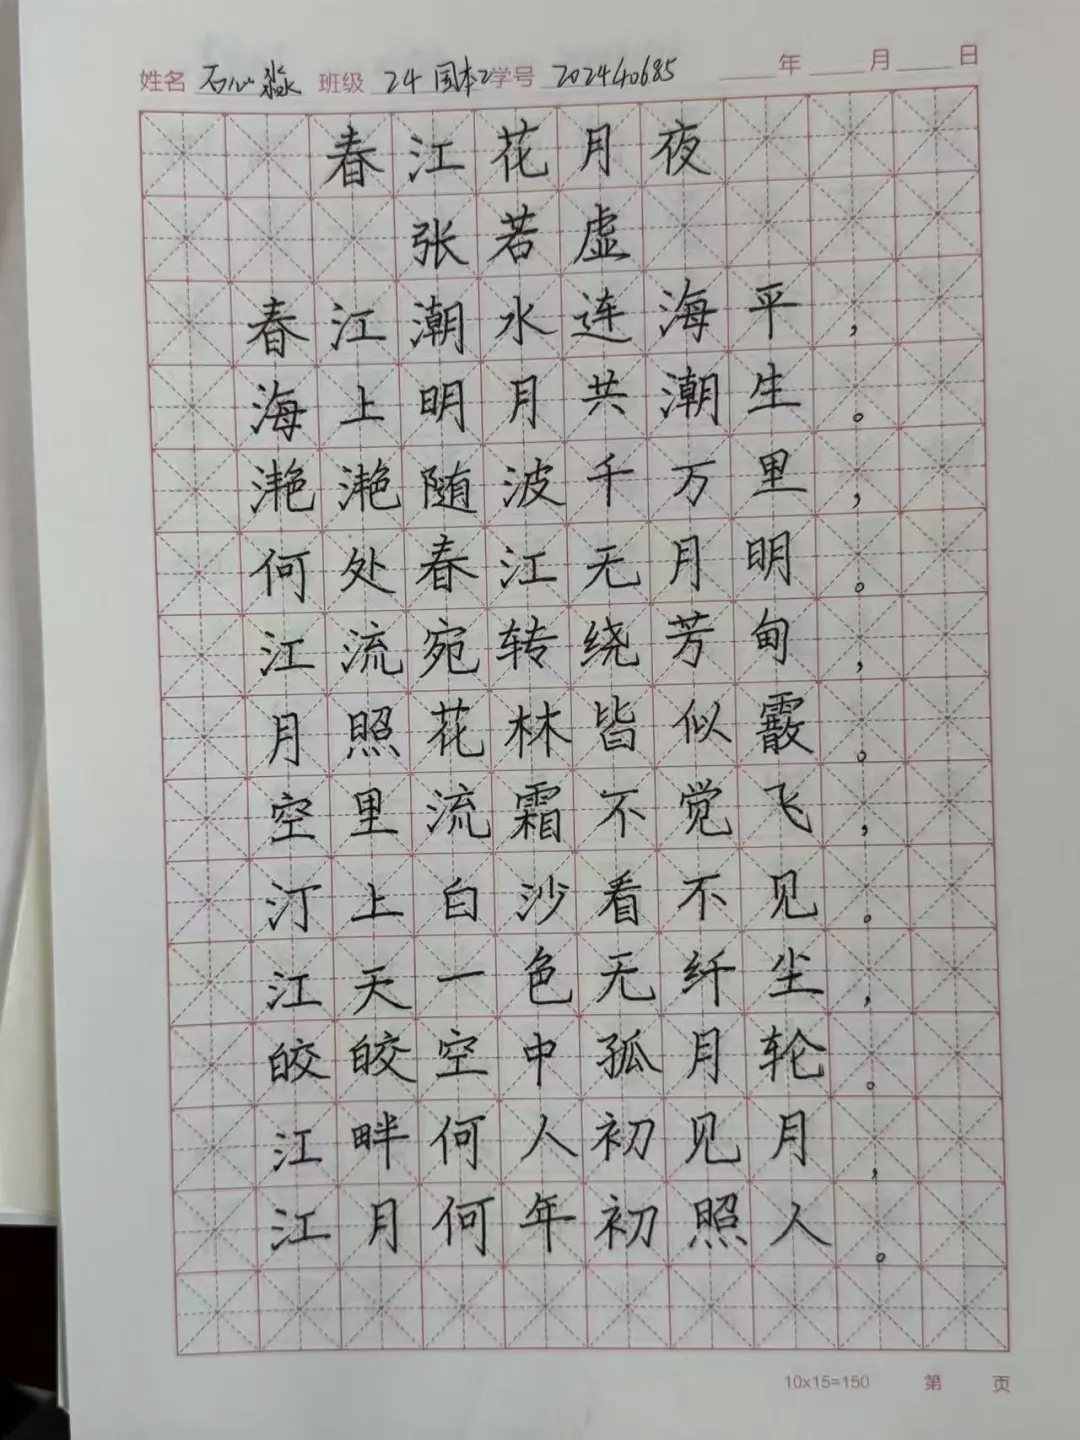 姓名 石心淼 班级 24国本2 学号 202440685 年 月 日
春江花月夜
张若虚
春江潮水连海平，
海上明月共潮生。
滟滟随波千万里，
何处春江无月明。
江流宛转绕芳甸，
月照花林皆似霰。
空里流霜不觉飞，
汀上白沙看不见。
江天一色无纤尘，
皎皎空中孤月轮。
江畔何人初见月，
江月何年初照人。
10x15=150 第 页